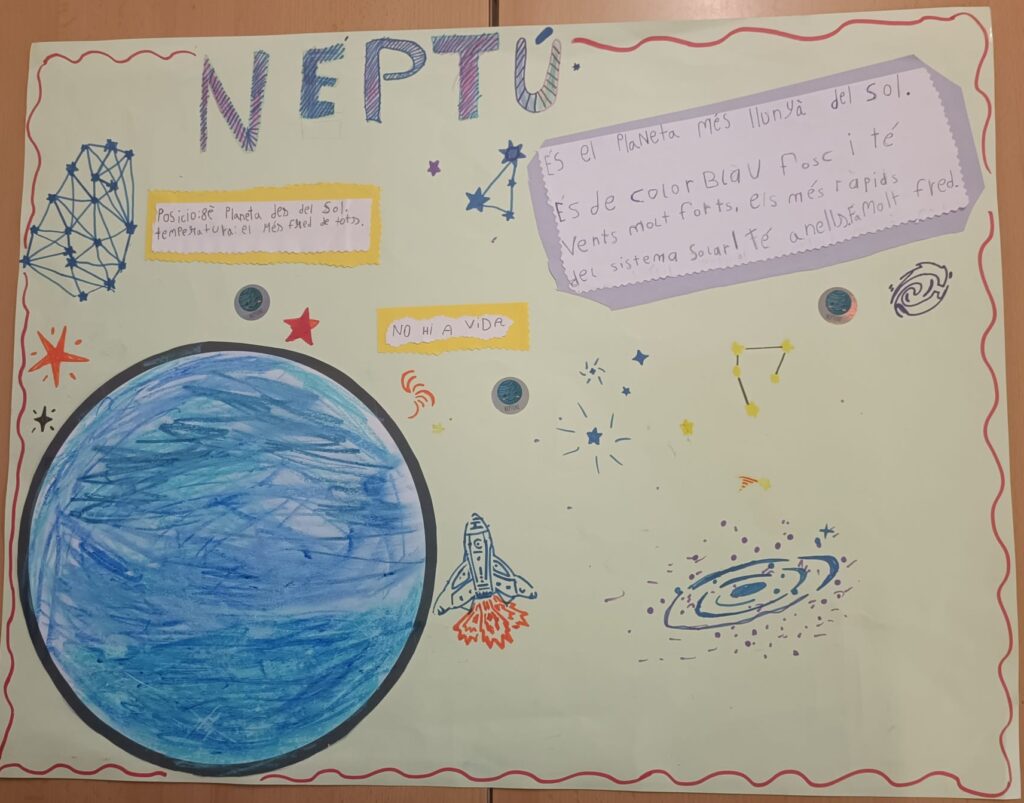 NEPTÚ
Posicio:8è Planeta des del Sol.
temperatura: el Més fred de tots.
És el PlaNeta Més llunyà del Sol.
És de color BlàU fosc i té
Vents molt forts, els més ràpids
del sistema Solar! Té anells. Fa Molt fred.
NO HI A ViDA